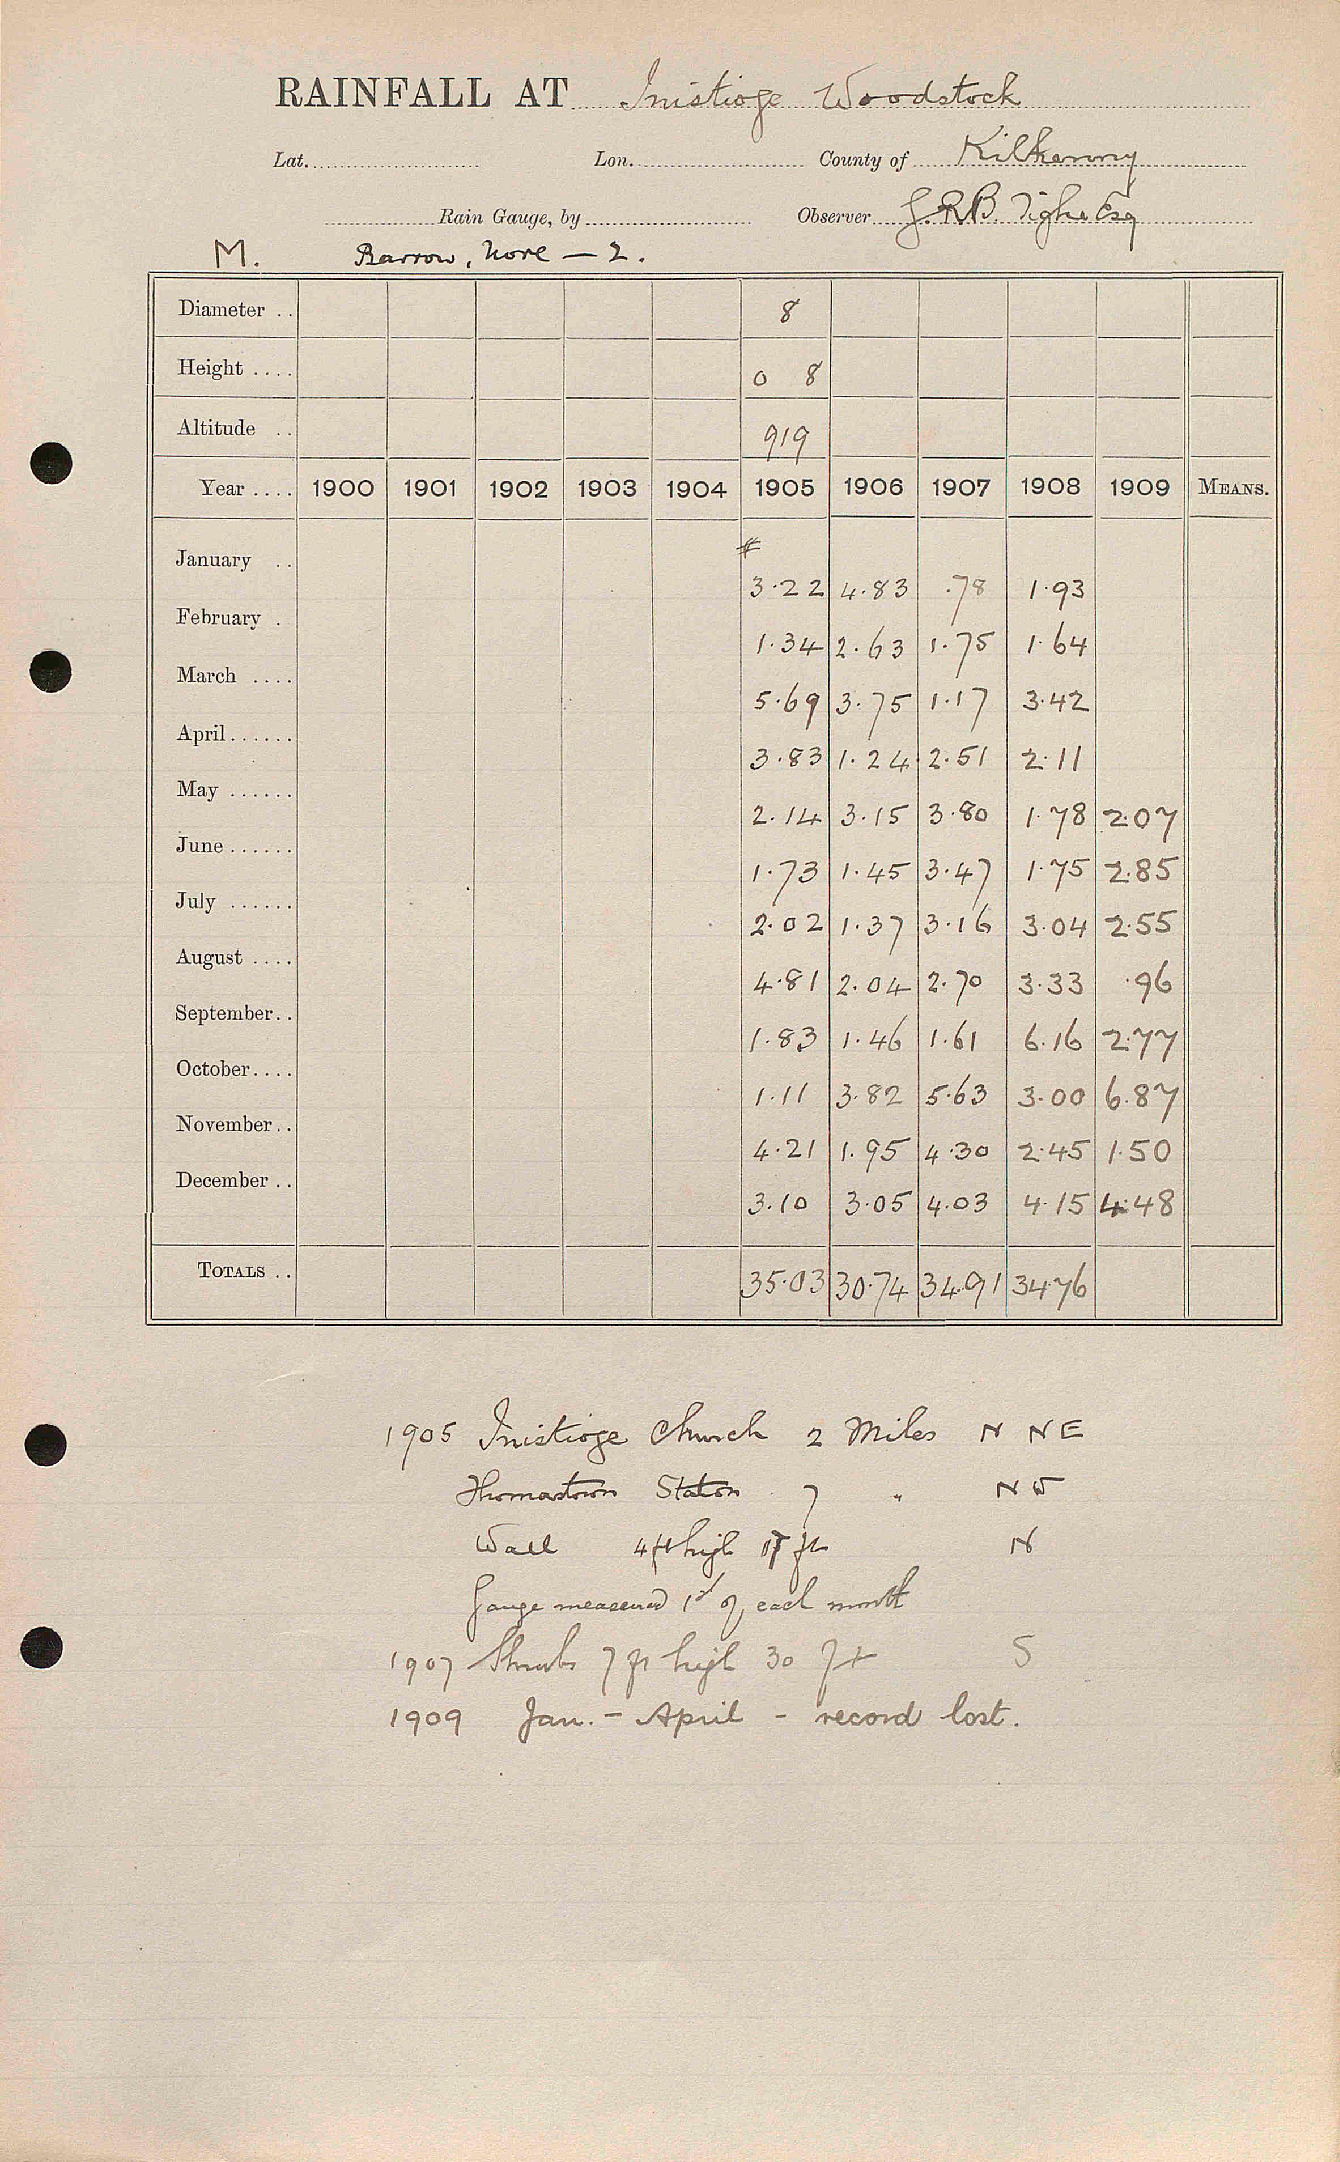 RAINFALL AT Inistioge Woodstock
Lat. Lon. County of Kilkenny
Rain Gauge, by Observer J.R.B. Tighe Esq
M. Barrow, Nore — 2.
Diameter .. 8
Height .... 0 8
Altitude .. 919
Year .... 1900 1901 1902 1903 1904 1905 1906 1907 1908 1909 MEANS.
#
January .. 3.22 4.83 .78 1.93
February . 1.34 2.63 1.75 1.64
March .... 5.69 3.75 1.17 3.42
April ...... 3.83 1.24 2.51 2.11
May ...... 2.14 3.15 3.80 1.78 2.07
June ...... 1.73 1.45 3.47 1.75 2.85
July ...... 2.02 1.37 3.16 3.04 2.55
August .... 4.81 2.04 2.70 3.33 .96
September.. 1.83 1.46 1.61 6.16 2.77
October.... 1.11 3.82 5.63 3.00 6.87
November.. 4.21 1.95 4.30 2.45 1.50
December .. 3.10 3.05 4.03 4.15 4.48
TOTALS .. 35.03 30.74 34.91 34.76
1905 Inistioge Church 2 Miles N NE
Thomastown Station 7 " NW
Wall 4 ft high ft N
Gauge measured 1st of each month
1907 Shrubs 7 ft high 30 ft S
1909 Jan. - April - record lost.